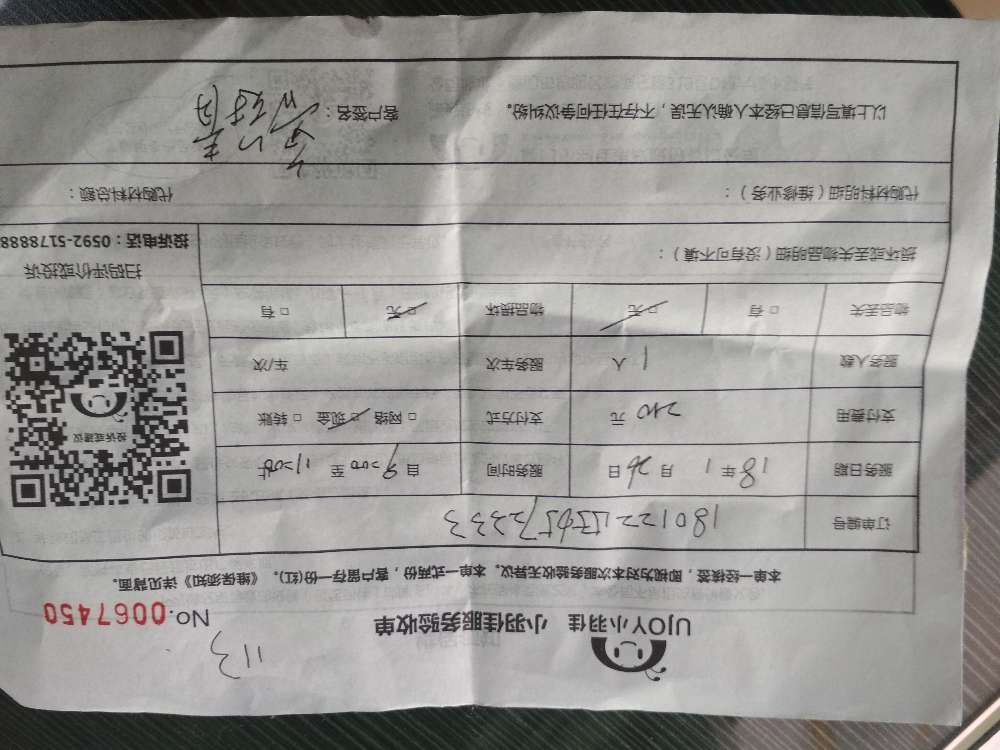 113
UJOY小羽佳 小羽佳服务验收单
No.0067450
本单一经核签，即视为对本次服务验收无异议。本单一式两份，客户留存一份(红)。《维保须知》详见背面。
订单编号
服务日期 18年1月26日 服务时间 自9:00至11:00止
支付费用 240元 支付方式 □网络 □现金 □转账
服务人数 1人 服务车次 车/次
物品丢失 □有 □无 物品损坏 □无 □有
损坏或丢失物品明细（没有可不填）：
投诉或建议
扫码评价或投诉
投诉电话：0592-5178888
代购材料明细（维修业务）： 代购材料总额：
以上填写信息已经本人确认无误，不存在任何争议纠纷。 客户签名：